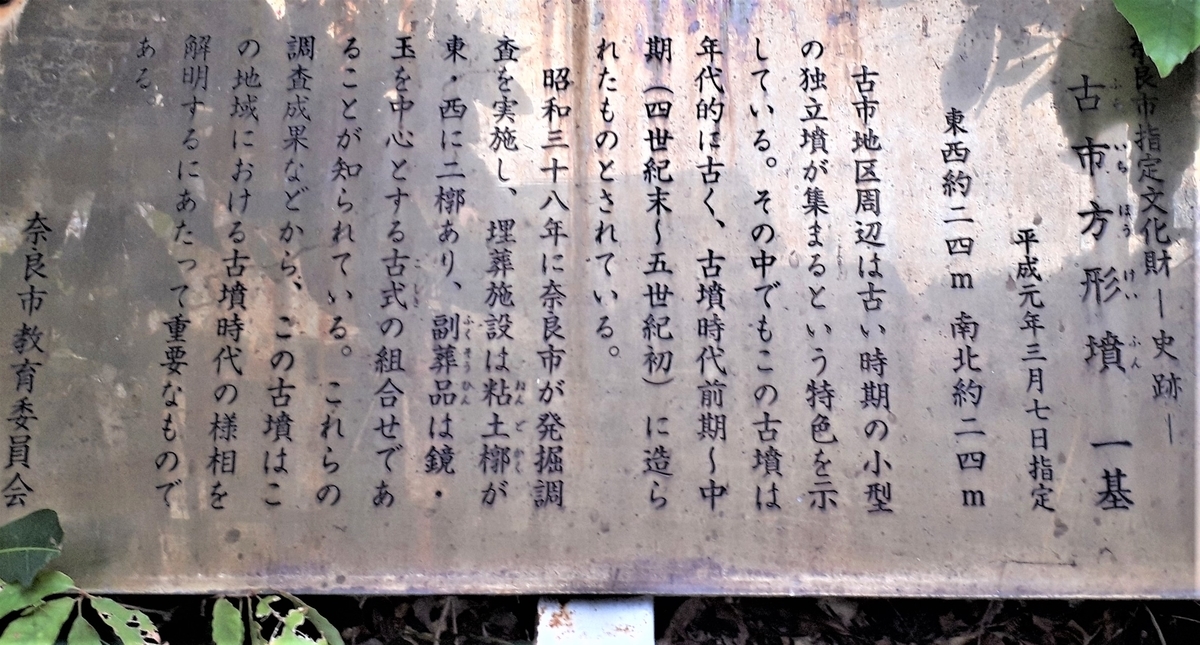 奈良市指定文化財―史跡―
古市方形墳 一基
ふる いち ほう けい ふん
平成元年三月七日指定
東西約二四m 南北約二四m
古市地区周辺は古い時期の小型
の独立墳が集まるという特色を示
している。その中でもこの古墳は
年代的に古く、古墳時代前期～中
期(四世紀末～五世紀初)に造ら
れたものとされている。
昭和三十八年に奈良市が発掘調
査を実施し、埋葬施設は粘土槨が
ねんど かく
東・西に二槨あり、副葬品は鏡・
ふくそうひん
玉を中心とする古式の組合せであ
こしき
ることが知られている。これらの
調査成果などから、この古墳はこ
の地域における古墳時代の様相を
解明するにあたって重要なもので
ある。
奈良市教育委員会